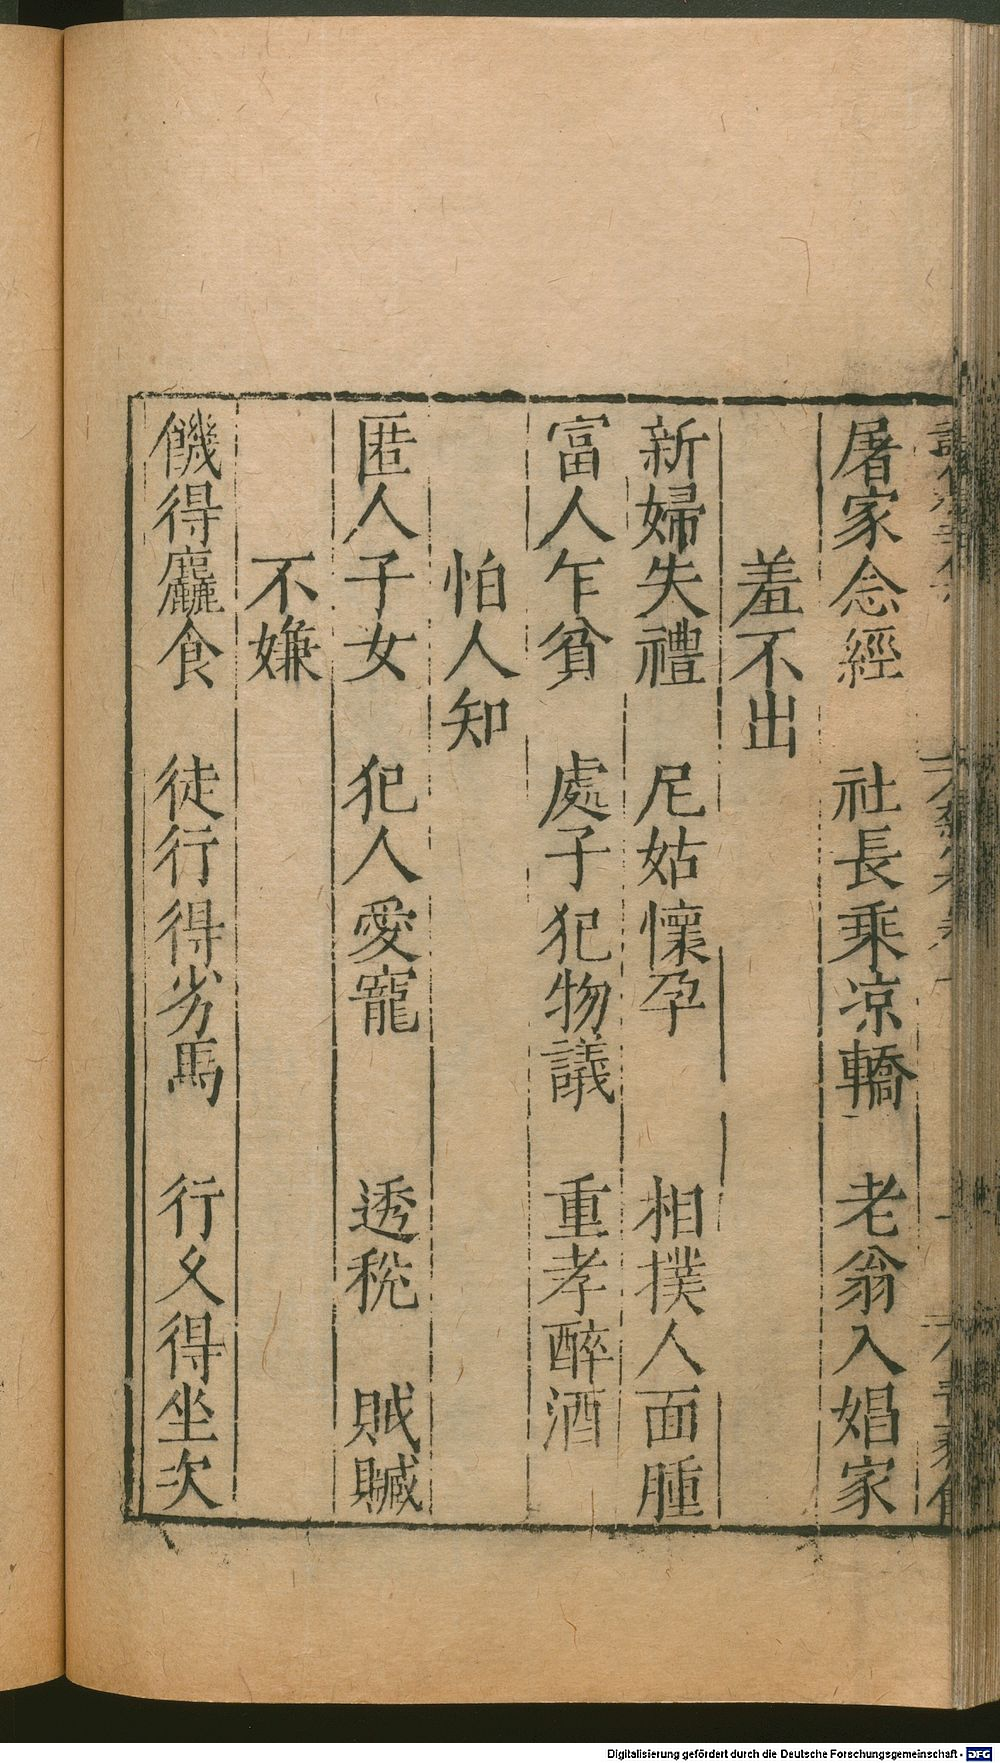 屠家念經　社長乘凉轎　老翁入娼家
羞不出
新婦失禮　尼姑懷孕　相撲人面腫
富人乍貧　處子犯物議　重孝醉酒
怕人知
匿人子女　犯人愛寵　透稅　賊贓
不嫌
饑得麤食　徒行得劣馬　行乆得坐次
Digitalisierung gefördert durch die Deutsche Forschungsgemeinschaft - DFG